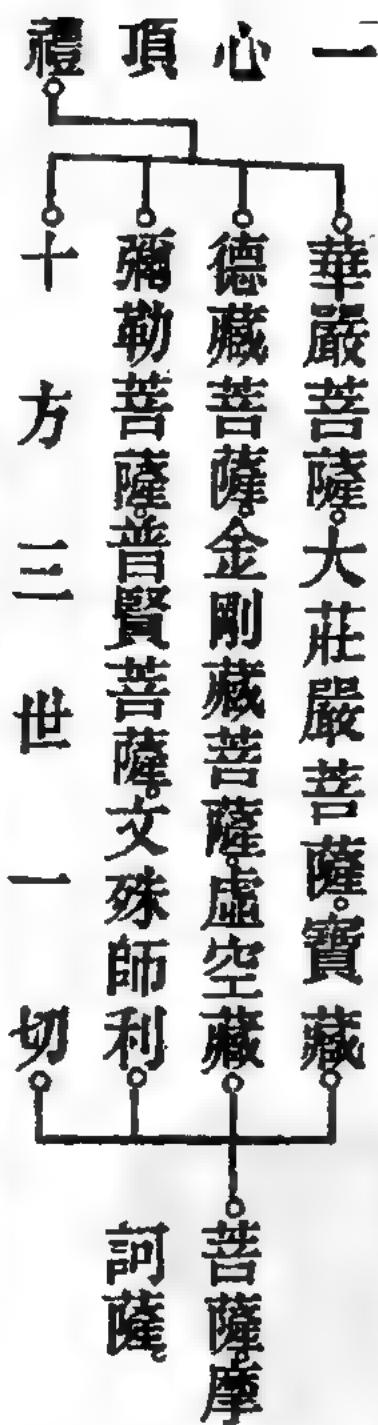 一心頂禮
華嚴菩薩。大莊嚴菩薩。寶藏
德藏菩薩。金剛藏菩薩。虛空藏
彌勒菩薩。普賢菩薩。文殊師利
十方三世一切
菩薩。摩
訶薩。